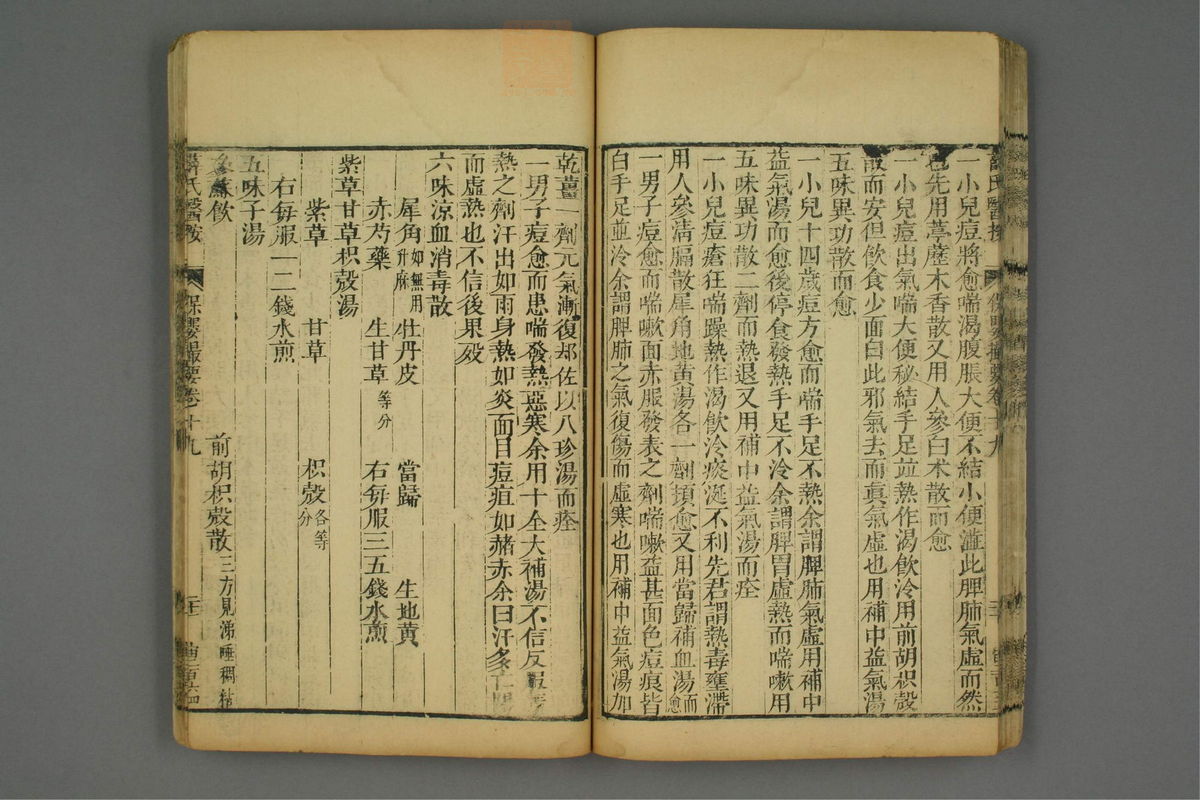 一小兒痘將愈喘渴腹脹大便不結小便澁此脾肺氣虛而然
也先用葶藶木香散又用人參白朮散而愈
一小兒痘出氣喘大便秘結手足竝熱作渴飲冷用前胡枳殼
散而安但飲食少面白此邪氣去而眞氣虛也用補中益氣湯
五味異功散而愈
一小兒十四歲痘方愈而喘手足不熱余謂脾肺氣虛用補中
益氣湯而愈後停食發熱手足不冷余謂脾胃虛熱而喘嗽用
五味異功散二劑而熱退又用補中益氣湯而痊
一小兒痘瘡狂喘躁熱作渴飲冷痰涎不利先君謂熱毒壅滯
用人參淸膈散犀角地黃湯各一劑頓愈又用當歸補血湯而愈
一男子痘愈而喘嗽面赤服發表之劑喘嗽益甚面色痘痕皆
白手足並冷余謂脾肺之氣復傷而虛寒也用補中益氣湯加
乾薑一劑元氣漸復却佐以八珍湯而痊
一男子痘愈而患喘發熱惡寒余用十全大補湯不信反服
熱之劑汗出如雨身熱如炎面目痘疽如赭赤余曰汗多亡陽
而虛熱也不信後果歿
六味涼血消毒散
犀角如無用升麻 牡丹皮 當歸 生地黃
赤芍藥 生甘草等分 右每服三五錢水煎
紫草甘草枳殼湯
紫草 甘草 枳殼各等分
右每服一二錢水煎
五味子湯
參蘇飲 前胡枳殼散三方見涕唾稠粘
薛氏醫按 保嬰撮要卷十九